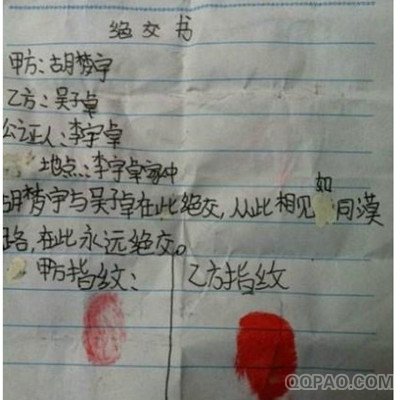 绝交书
甲方:胡梦宇
乙方:吴子卓
公证人:李宇卓
地点:李宇卓家中
胡梦宇与吴子卓在此绝交,从此相见如同漠
路,在此永远绝交。
甲方指纹: 乙方指纹
QQPAO.COM